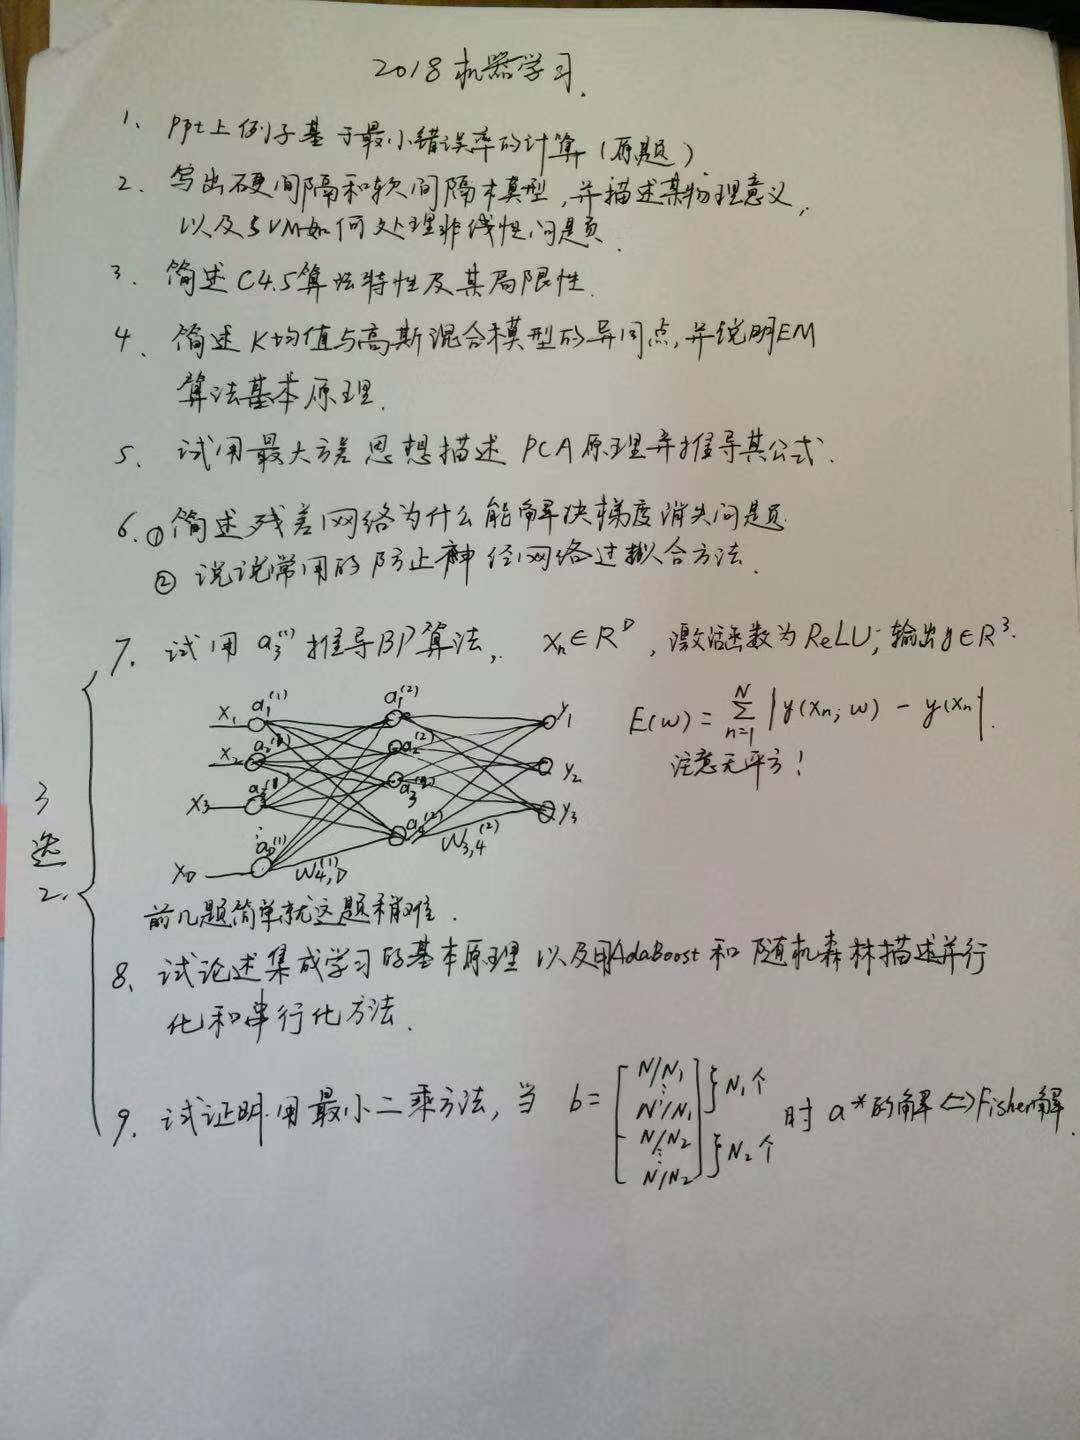 2018机器学习.
1、ppt上例子基于最小错误率的计算(原题)
2、写出硬间隔和软间隔模型,并描述其物理意义,
以及SVM如何处理非线性问题.
3、简述C4.5算法特性及其局限性.
4、简述K均值与高斯混合模型的异同点,并说明EM
算法基本原理.
5、试用最大方差思想描述PCA原理并推导其公式.
6、①简述残差网络为什么能解决梯度消失问题
②说说常用的防止神经网络过拟合方法.
3选2.
7、试用a₃⁽¹⁾推导BP算法, xₙ∈Rᴰ,激活函数为ReLU;输出y∈R³.
X₁ a₁⁽¹⁾ a₁⁽²⁾ y₁
X₂ a₂⁽¹⁾ a₂⁽²⁾ y₂
X₃ a₃⁽¹⁾ a₃⁽²⁾ y₃
⋮ a₄⁽²⁾
X_D a_D⁽¹⁾ W⁽¹⁾4,D W⁽²⁾3,4
E(w) = Σ_{n=1}^{N} |y(xₙ, w) - y(xₙ|.
注意无平方!
前几题简单就这题稍难.
8、试论述集成学习的基本原理以及用AdaBoost和随机森林描述并行
化和串行化方法.
9、试证明用最小二乘方法,当 b= [N/N₁ ⋮ N/N₁ N/N₂ ⋮ N/N₂] }N₁个 }N₂个 时a*的解<=>Fisher解.